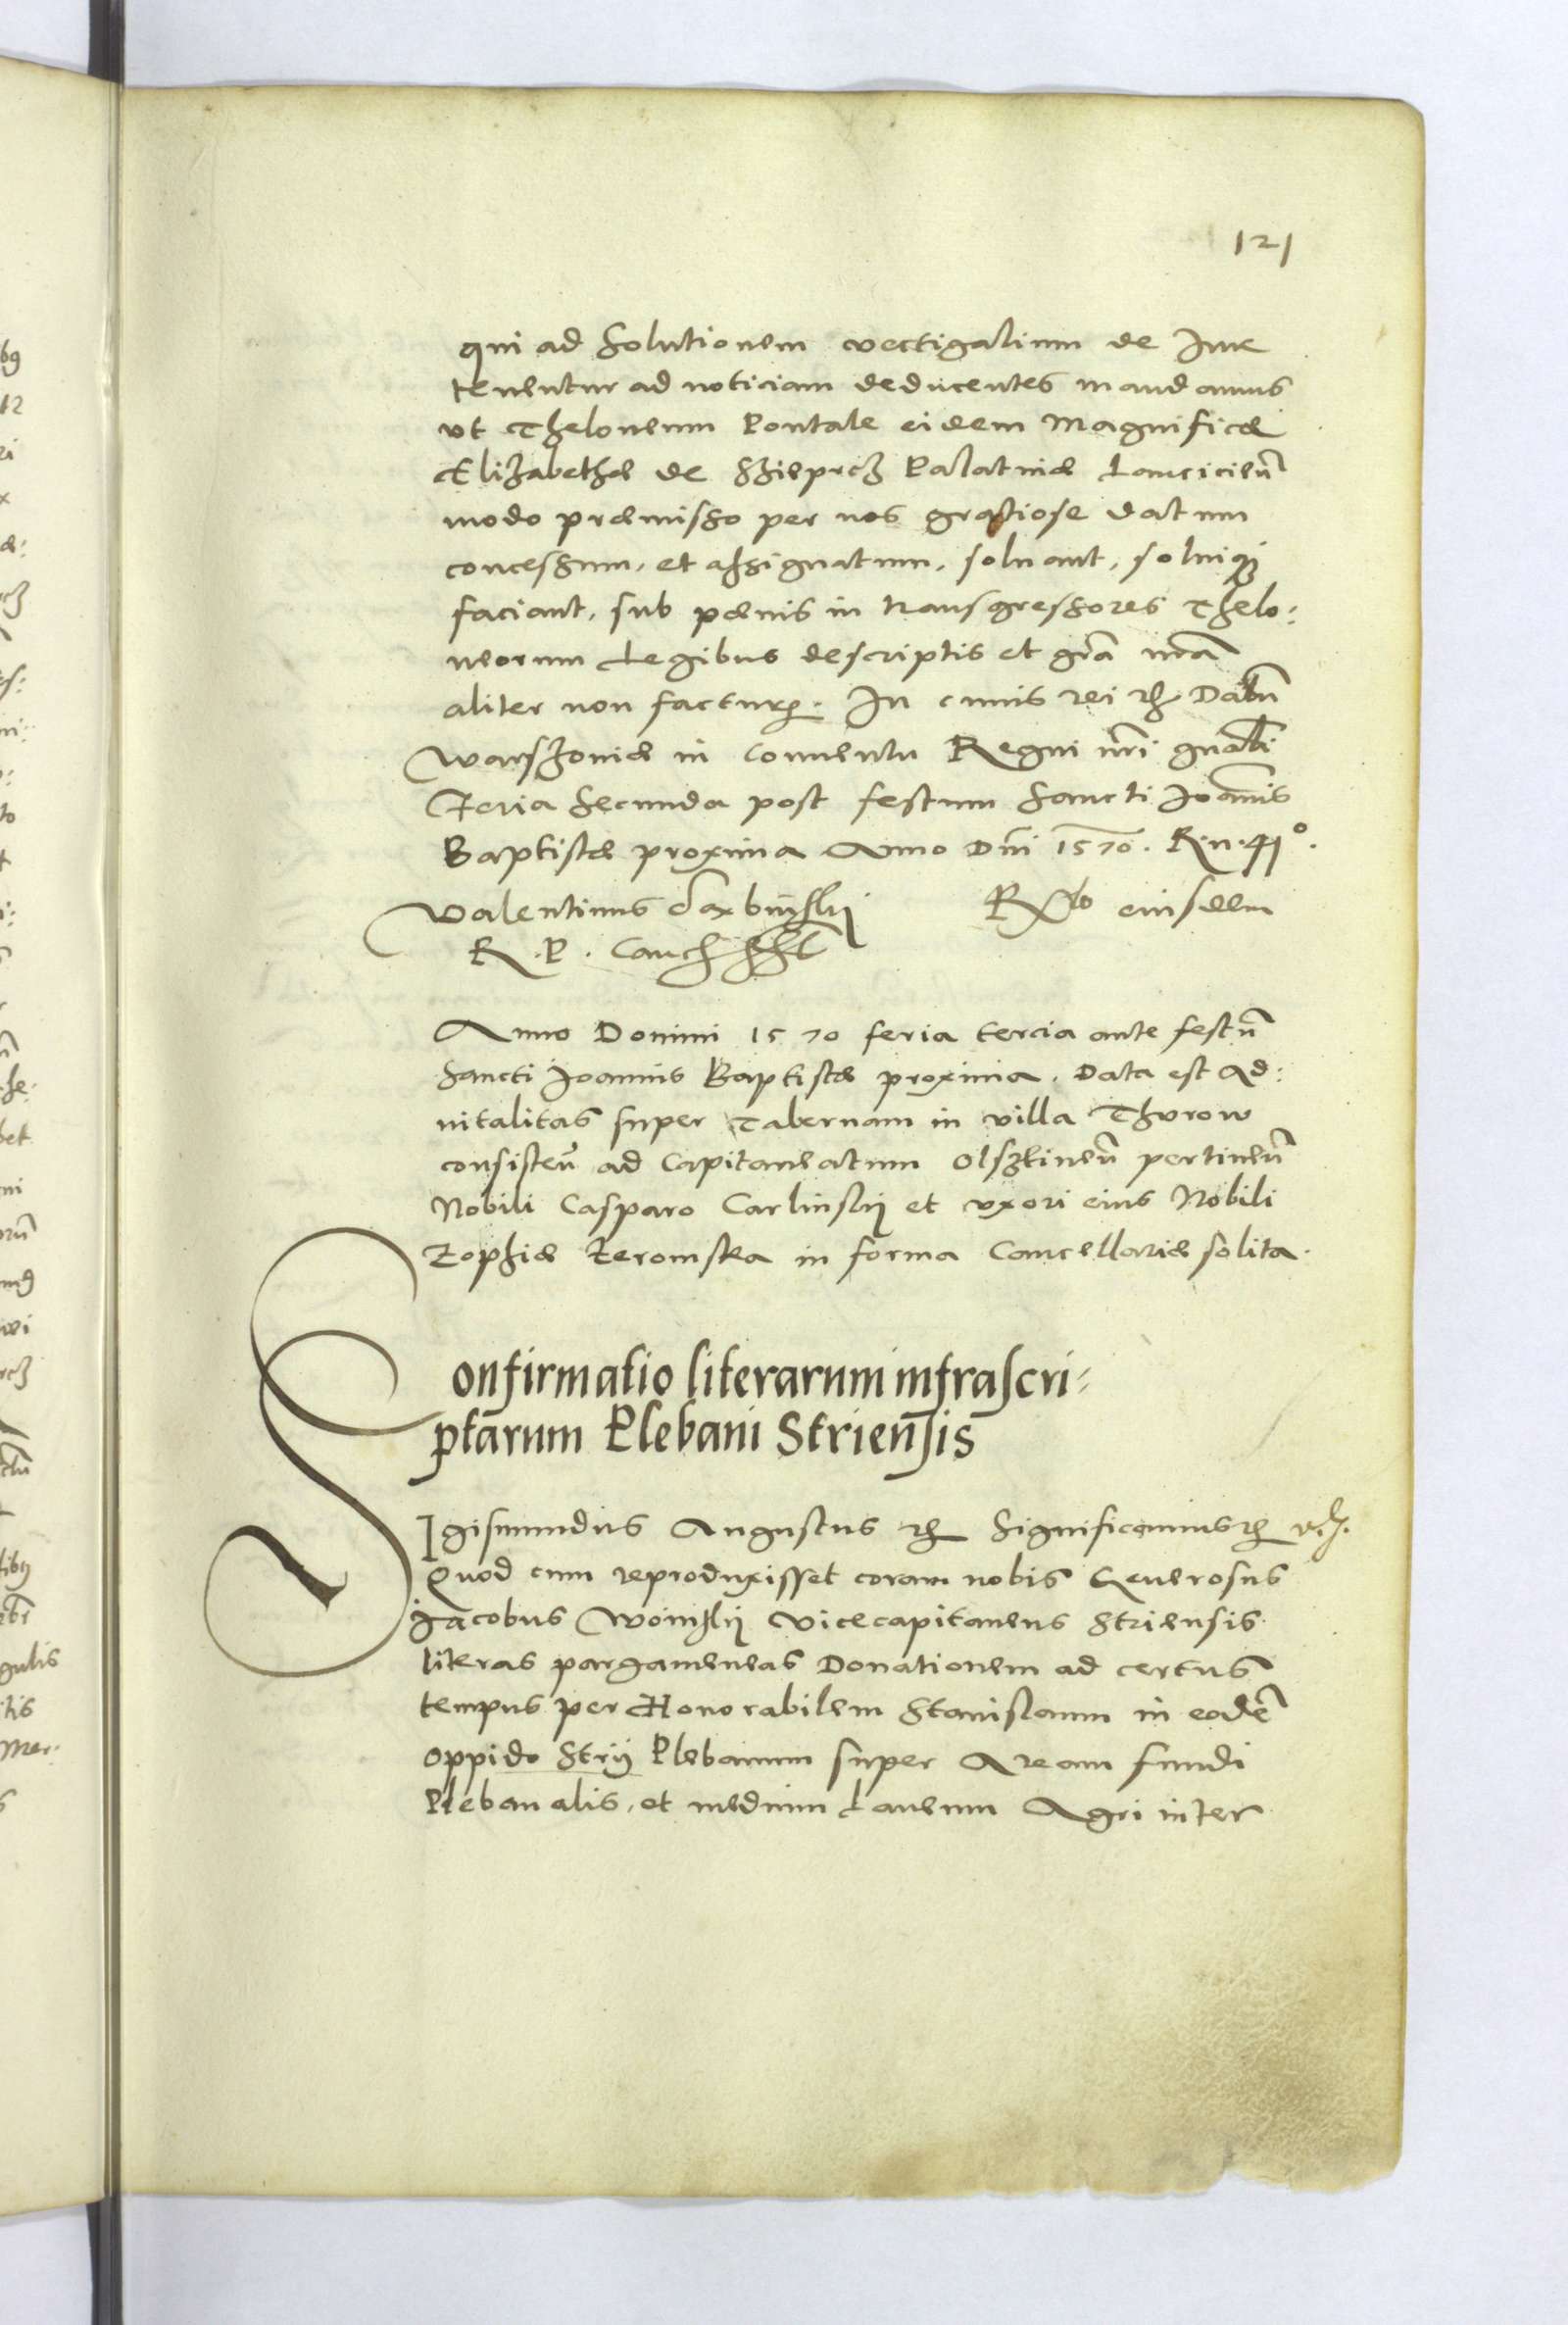 121
qui ad solutionem vectigalium de Iure
tenentur ad noticiam deducentes mandamus
vt Theloneum Pontale eidem Magnificæ
Elizabethæ de Palatinæ Lancicieñ
modo præmisso per nos gratiose datum
concessum, et assignatum, soluant, soluiq;
faciant, sub pænis in transgressores Thelo:
neorum Legibus descriptis et gr̃a nr̃a
aliter non factur. In cuius rei Datũ
Warszouiæ in Conuentu Regni nr̃i gnãli
Feria Secunda post festum Sancti Ioãnnis
Baptistæ proxima Anno Dñi 1570. R. n. 41°.
Valentinus Dąbinskij Rlo eiusdem
R. P. Canc̃ sst
Anno Domini 1570 feria tercia ante festũ
Sancti Joannis Baptistæ proxima. Data est ad:
uitalitas super Tabernam in villa Thurow
consisteñ ad Capitaneatum Olsztineñ pertineñ
Nobili Casparo Carlinskij et vxori eius Nobili
Zophiæ Zeromska in forma Cancellariæ solita.
Confirmatio literarum infrascri-
ptarum Plebani Strieñsis
SIgismundus Augustus Significamus
Quod cum reproduxisset coram nobis Generosus
Jacobus Woinskij Vicecapitaneus Striensis
literas pargameneas Donationem ad certus
tempus per Honorabilem Stanislaum in eodẽ
oppido Strij Plebanum super Aream fundi
Plebanalis, et medium Laneum Agri inter